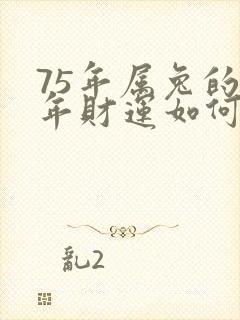 75年属兔的
年财运如何
乱2